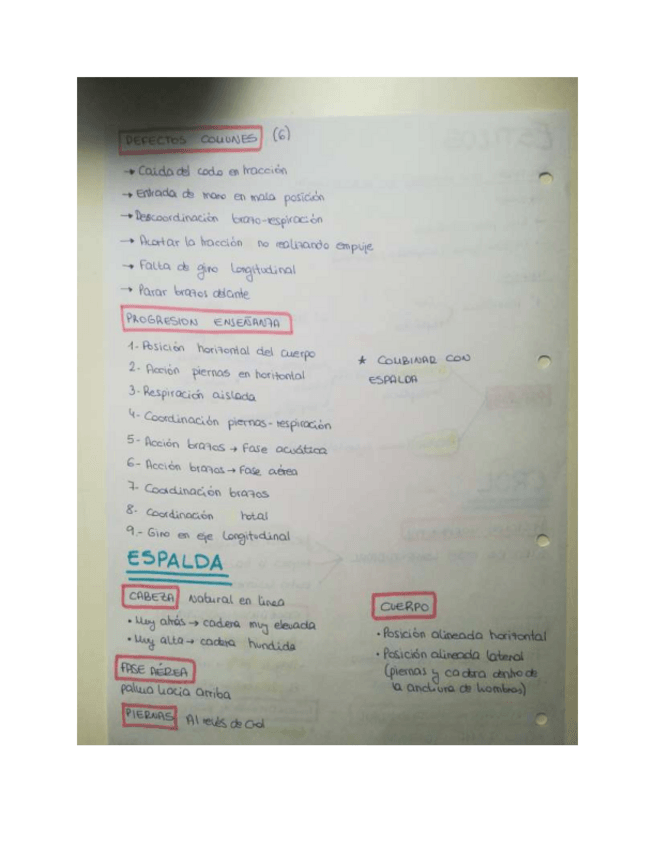 DEFECTOS COMUNES (6)
→ Caida del codo en tracción
→ Entrada de mano en mala posición
→ Descoordinación brazo-respiración
→ Acortar la tracción no realizando empuje
→ Falta de giro longitudinal
→ Parar brazos delante
PROGRESION ENSEÑANZA
1- Posición horizontal del cuerpo
2- Acción piernas en horizontal
3- Respiración aislada
4- Coordinación piernas-respiración
5- Acción brazos → Fase acuática
6- Acción brazos → Fase aérea
7- Coordinación brazos
8- Coordinación total
9.- Giro en eje longitudinal
* COMBINAR CON
ESPALDA
ESPALDA
CABEZA Natural en linea
• Muy atrás → cadera muy elevada
• Muy alta → cadera hundida
FASE AÉREA
palma hacia arriba
PIERNAS Al revés de Crol
CUERPO
• Posición alineada horizontal
• Posición alineada lateral
(piernas y cadera dentro de
la anchura de hombros)
ESTILOS
CROL